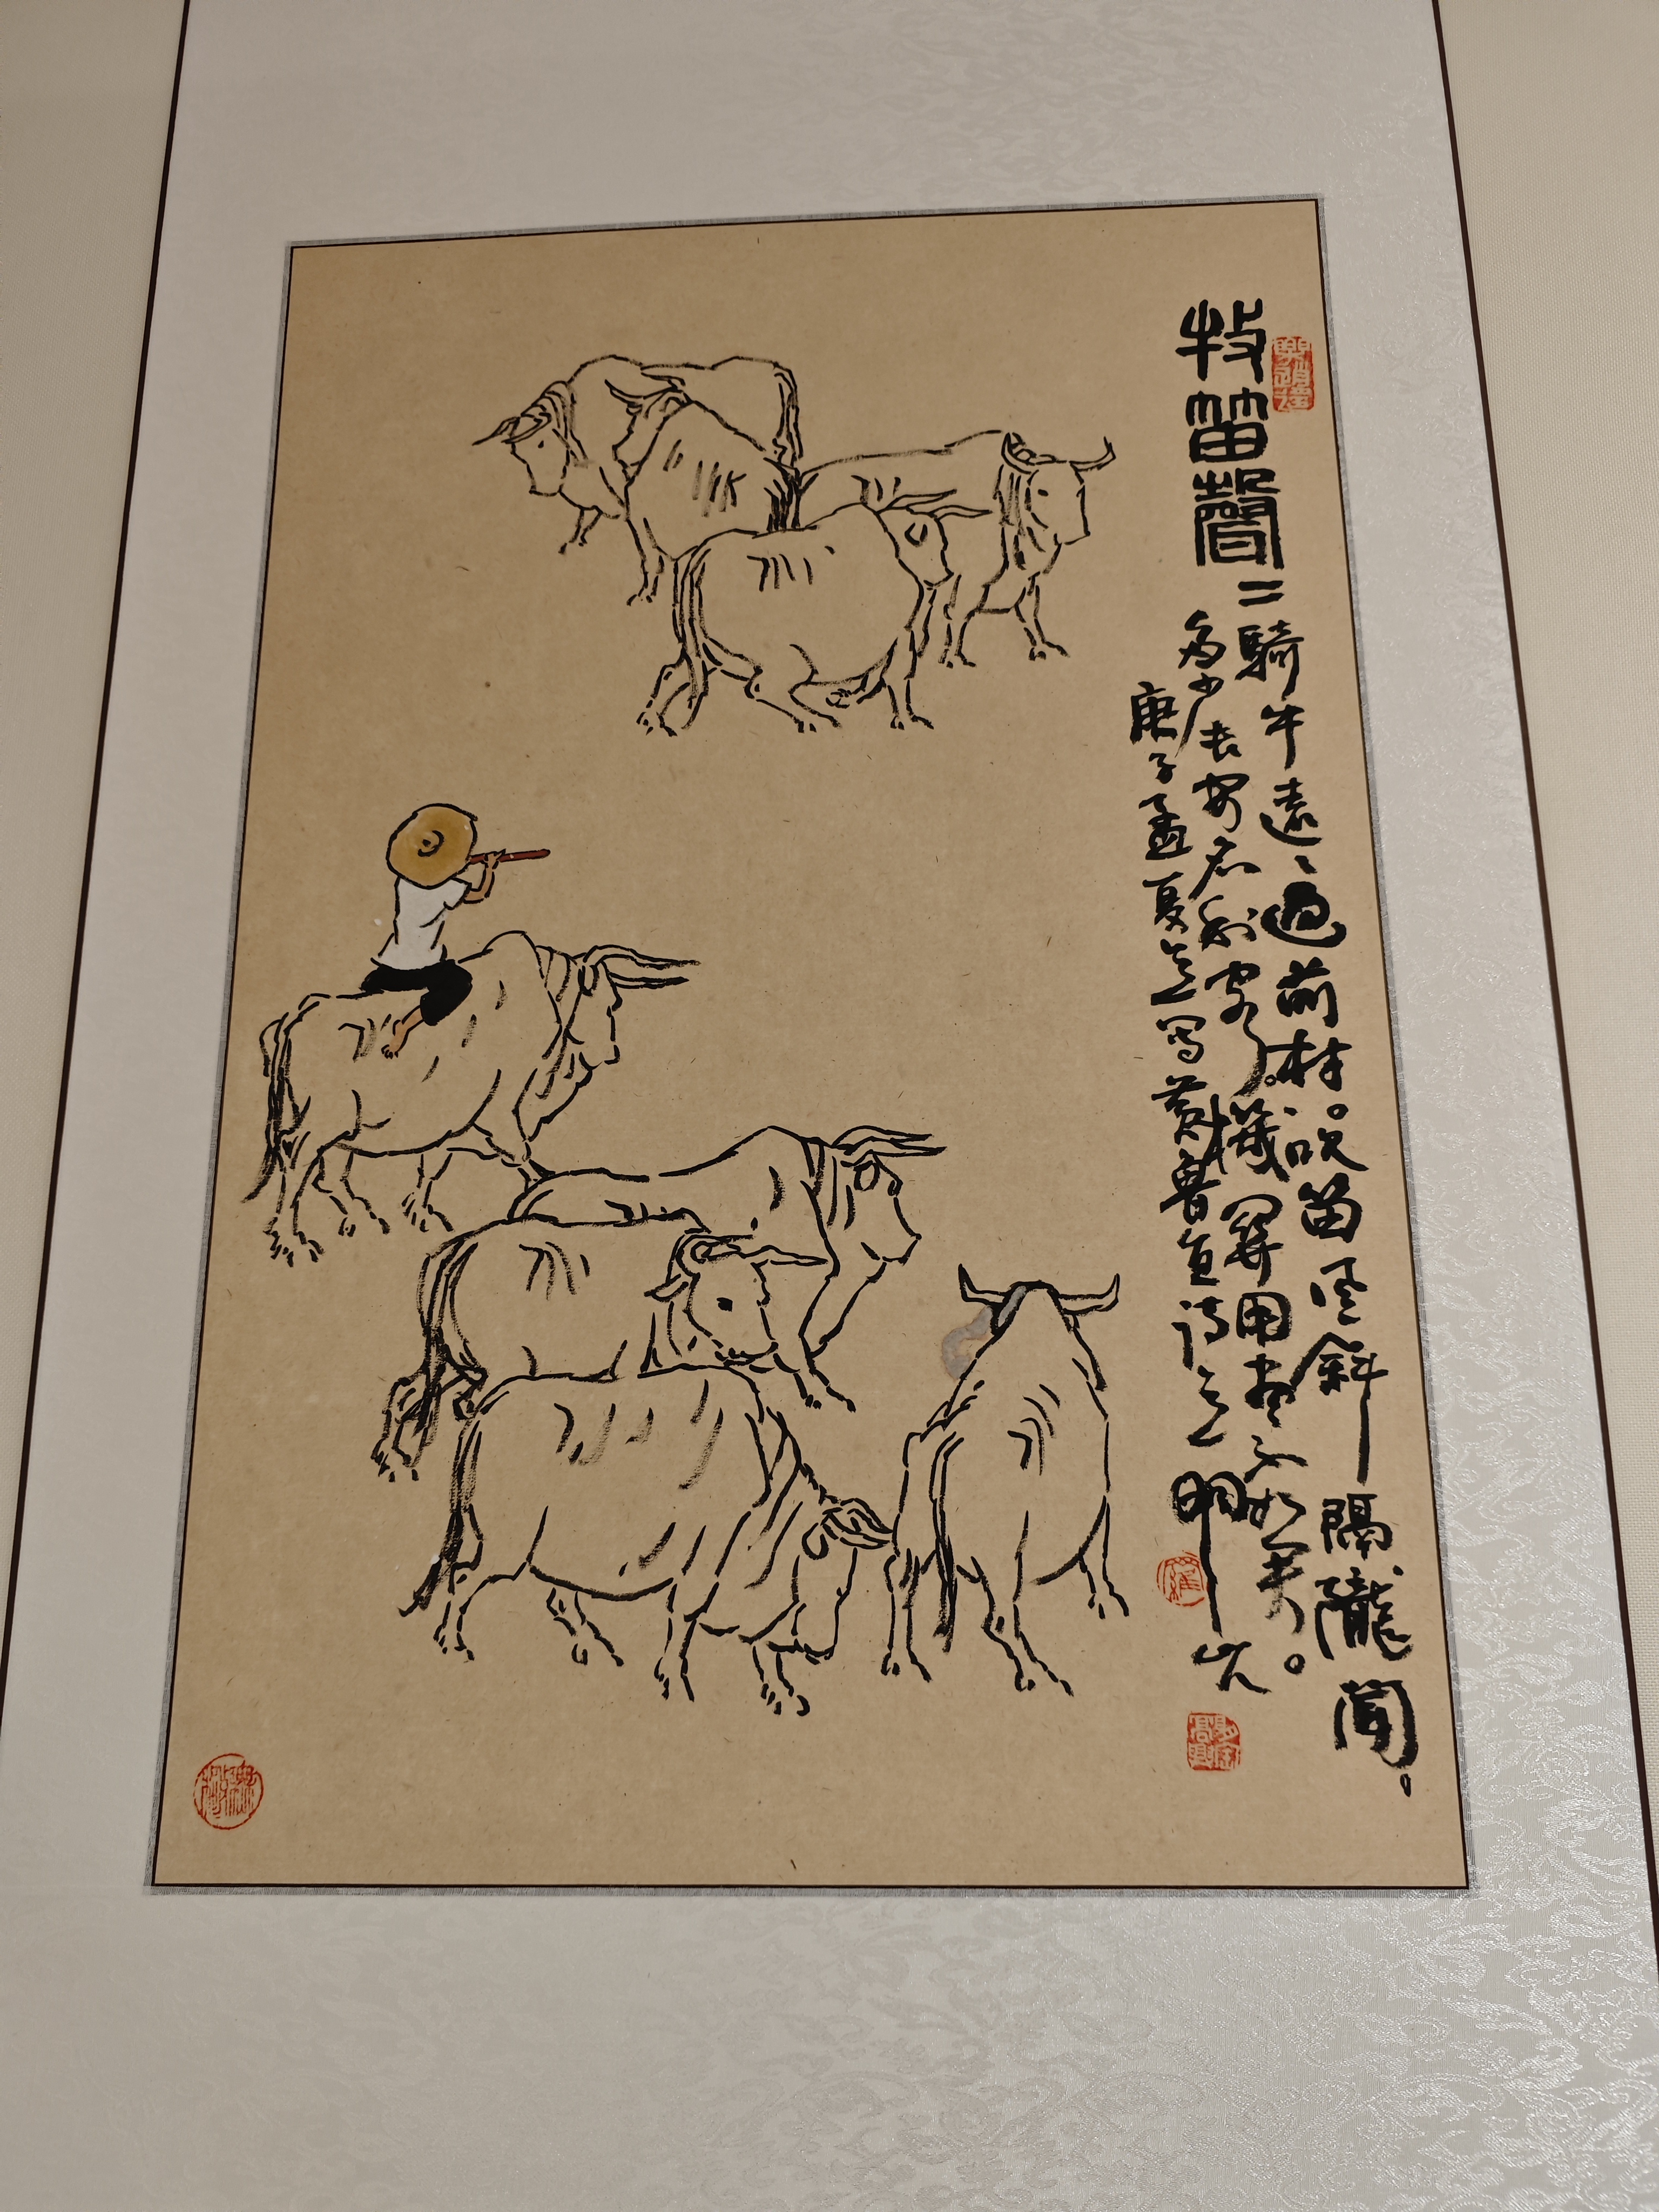 牧笛聲二
騎牛遠〻過前村。吹笛風斜隔隴聞。
多少長安名利客。機關用盡不如君。
庚子孟夏之寫黃魯直詩之明